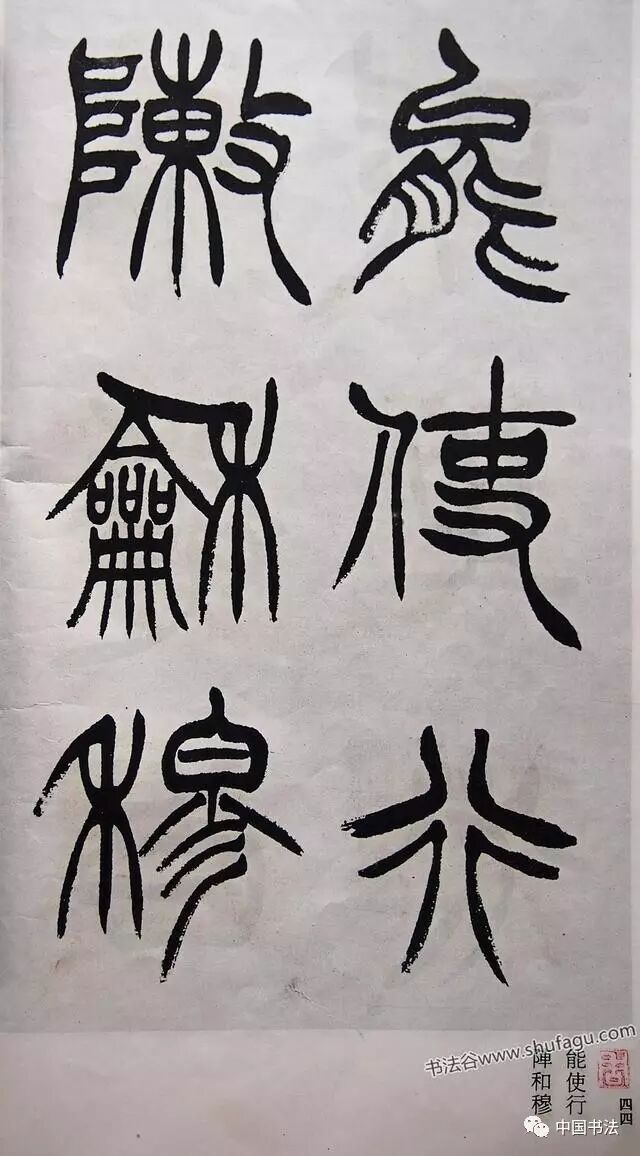 能使行
敶龢穆
能使行
陣和穆
四四
书法谷www.shufagu.com
中国书法